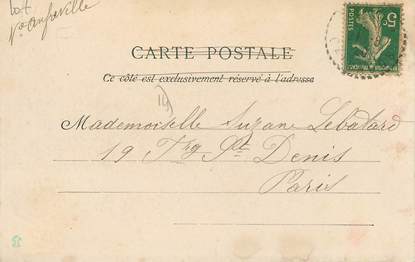 CARTE POSTALE
Ce côté est exclusivement réservé à l'adresse
Mademoiselle Suzane Lebatard
19 Fbg St Denis
Paris